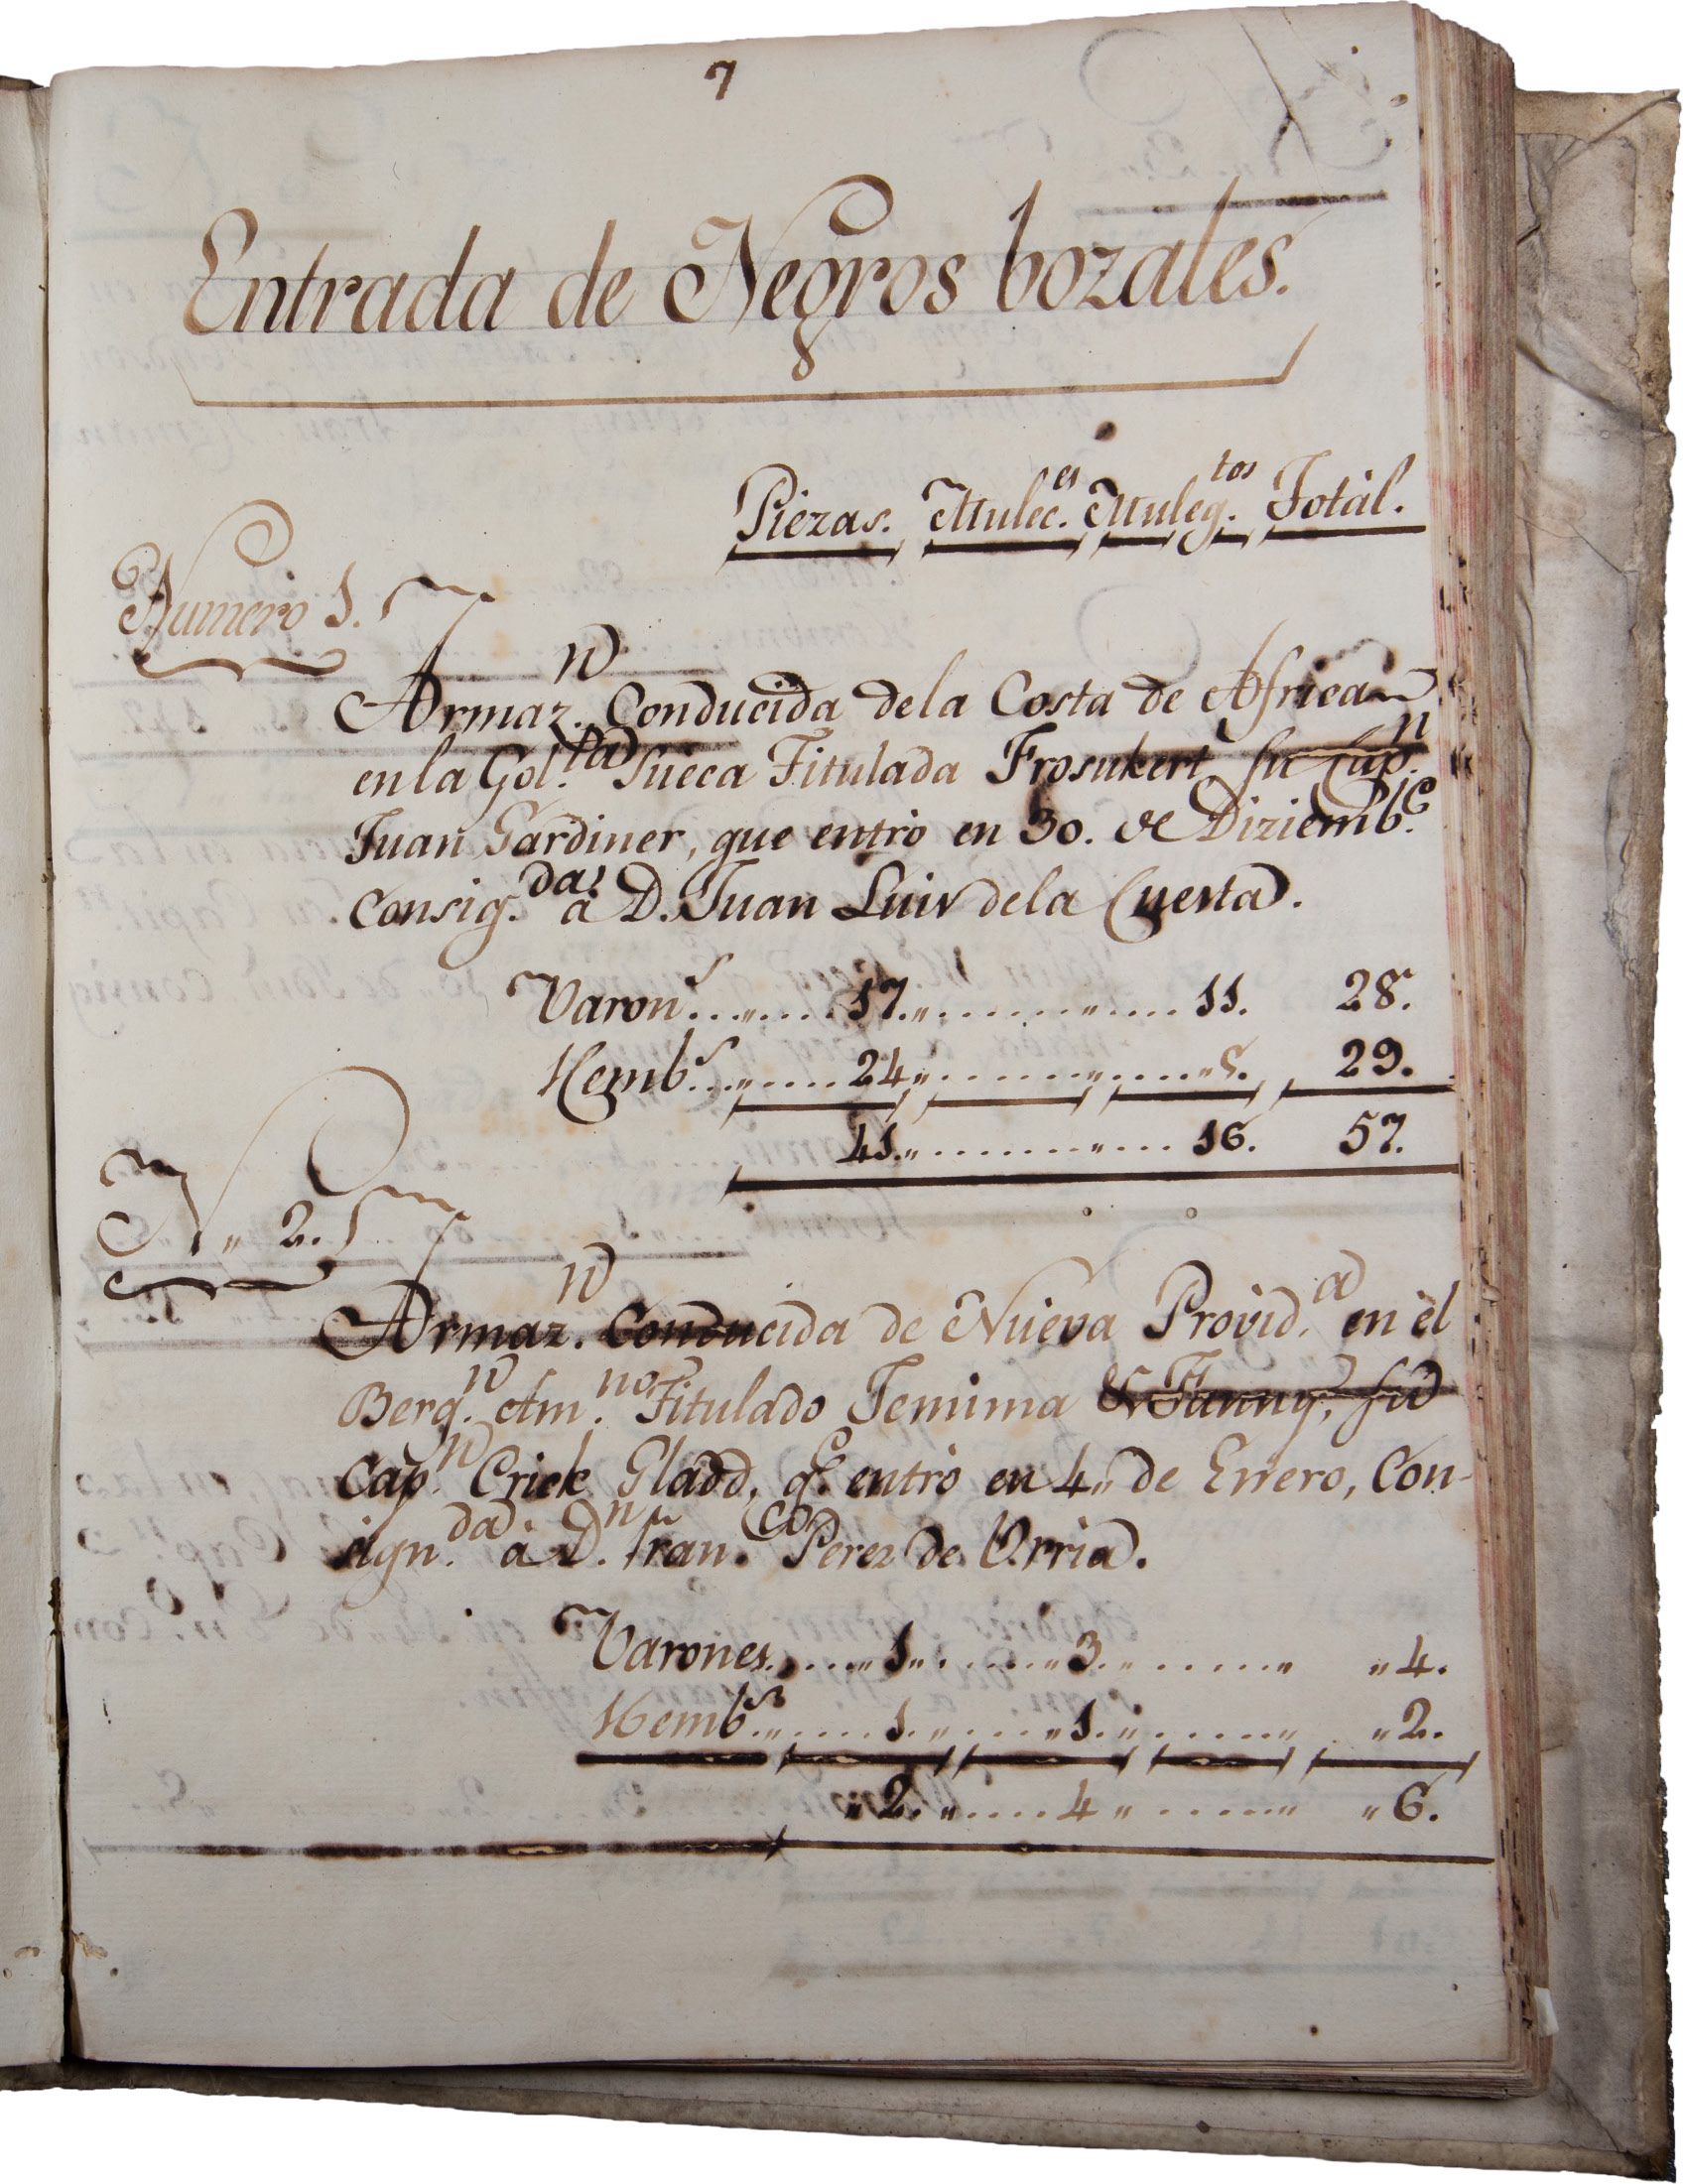 7
Entrada de Negros bozales.
Piezas. Mulec.es Muleq.tos Total.
Numero 1.
Armaz.n Conducida dela Costa de Africa
en la Gol.ta Sueca Titulada Frosukert su Cap.n
Juan Gardiner, que entró en 30. de Diziemb.e
Consig.da à D. Juan Luis dela Cuesta.
Varon.s...„.....17.„.......„....11. 28.
Hemb.s...„.....24„.......„.....„5. 29.
41.„.........„....16. 57.
N„ 2.
Armaz.n Conducida de Nueva Provid.a en el
Berg.n Am.no Titulado Jemima & Fanny, su
Cap.n Crick Gladd, q.e entró en 4„ de Enero, Con-
sign.da à D.n Fran.co Perez de Urria.
Varones.....„1„......„3.„......„ „4.
Hemb.s„.....1.„....„1.„......„ „2.
„2.„.....4„......„ „6.